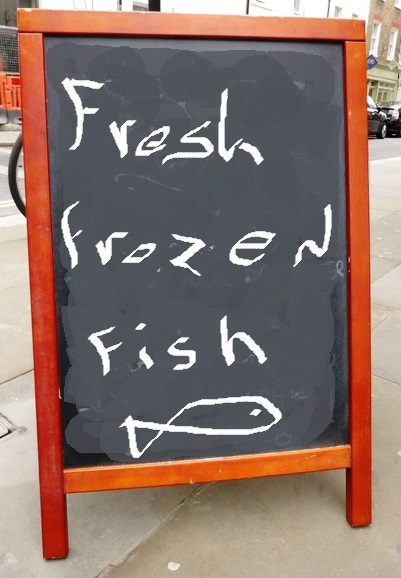 Fresh
frozen
Fish